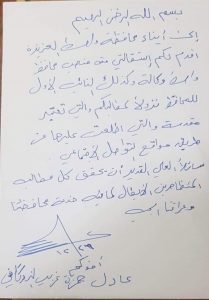 بسم الله الرحمن الرحيم
إلى أبناء محافظة واسط العزيزة
أقدم لكم استقالتي من منصب محافظ
واسط وكالة وكذلك النائب الأول
للمحافظ نزولاً لمطالبكم والتي تعتبر
مقدسة والتي اطلعت عليها عن
طريق مواقع التواصل الاجتماعي
سائلاً العلي القدير أن يحقق كل مطالب
المتظاهرين الأبطال لما فيه خدمة محافظتنا
وعراقنا الحبيب
١٢/٢٩
أخوكم
عادل حمزة غريب الزركاني